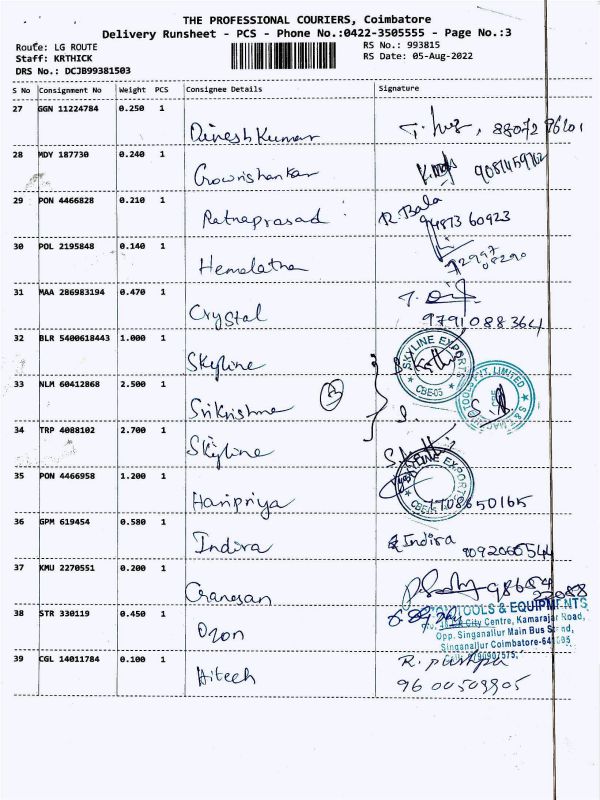 THE PROFESSIONAL COURIERS, Coimbatore
Delivery Runsheet - PCS - Phone No.:0422-3505555 - Page No.:3
Route: LG ROUTE RS No.: 993815
Staff: KRTHICK RS Date: 05-Aug-2022
DRS No.: DCJB99381503
S No Consignment No Weight PCS Consignee Details Signature
27 GGN 11224784 0.250 1
Dinesh Kumar
28 MDY 187730 0.240 1
Gowrishankar
29 PON 4466828 0.210 1
Ratnaprasad R. Bala
94873 60923
30 POL 2195848 0.140 1
Hemalatha
31 MAA 286983194 0.470 1
Crystal 9791088364
32 BLR 5400618443 1.000 1
Skyline SKYLINE EXPORTS CBE-05
33 NLM 60412868 2.500 1
Srikrishna
34 TRP 4088102 2.700 1
Skyline
35 PON 4466958 1.200 1
Haripriya 7708650165
36 GPM 619454 0.580 1
Indira Indira
37 KMU 2270551 0.200 1
38 STR 330119 0.450 1
Ozon TOOLS & EQUIPMENTS
City Centre, Kamaraj Road,
Opp. Singanallur Main Bus Stand,
Singanallur Coimbatore-641005
39 CGL 14011784 0.100 1
Hitech R. pushpa
9600509805